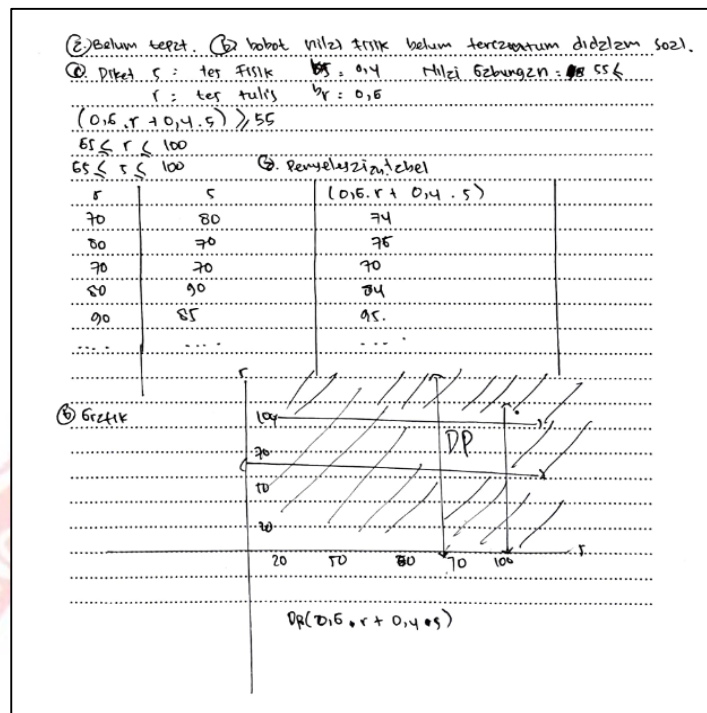 ② Belum tepat. ⓑ bobot nilai fisik belum tercantum didalam soal.
ⓒ Diket s : tes fisik bs : 0,4 Nilai Gabungan : 55 ≤
r : tes tulis br : 0,6
(0,6 . r + 0,4 . s) ≥ 55
65 ≤ r ≤ 100
65 ≤ s ≤ 100 ⓐ. Penyelesaian tabel
r s (0,6. r + 0,4 . s)
70 80 74
80 70 76
70 70 70
80 90 84
90 85 95.
.... .... ....
r
ⓑ Grafik
100
70
50
20
DP
20 50 60 70 100 s
DP(0,6 . r + 0,4 . s)